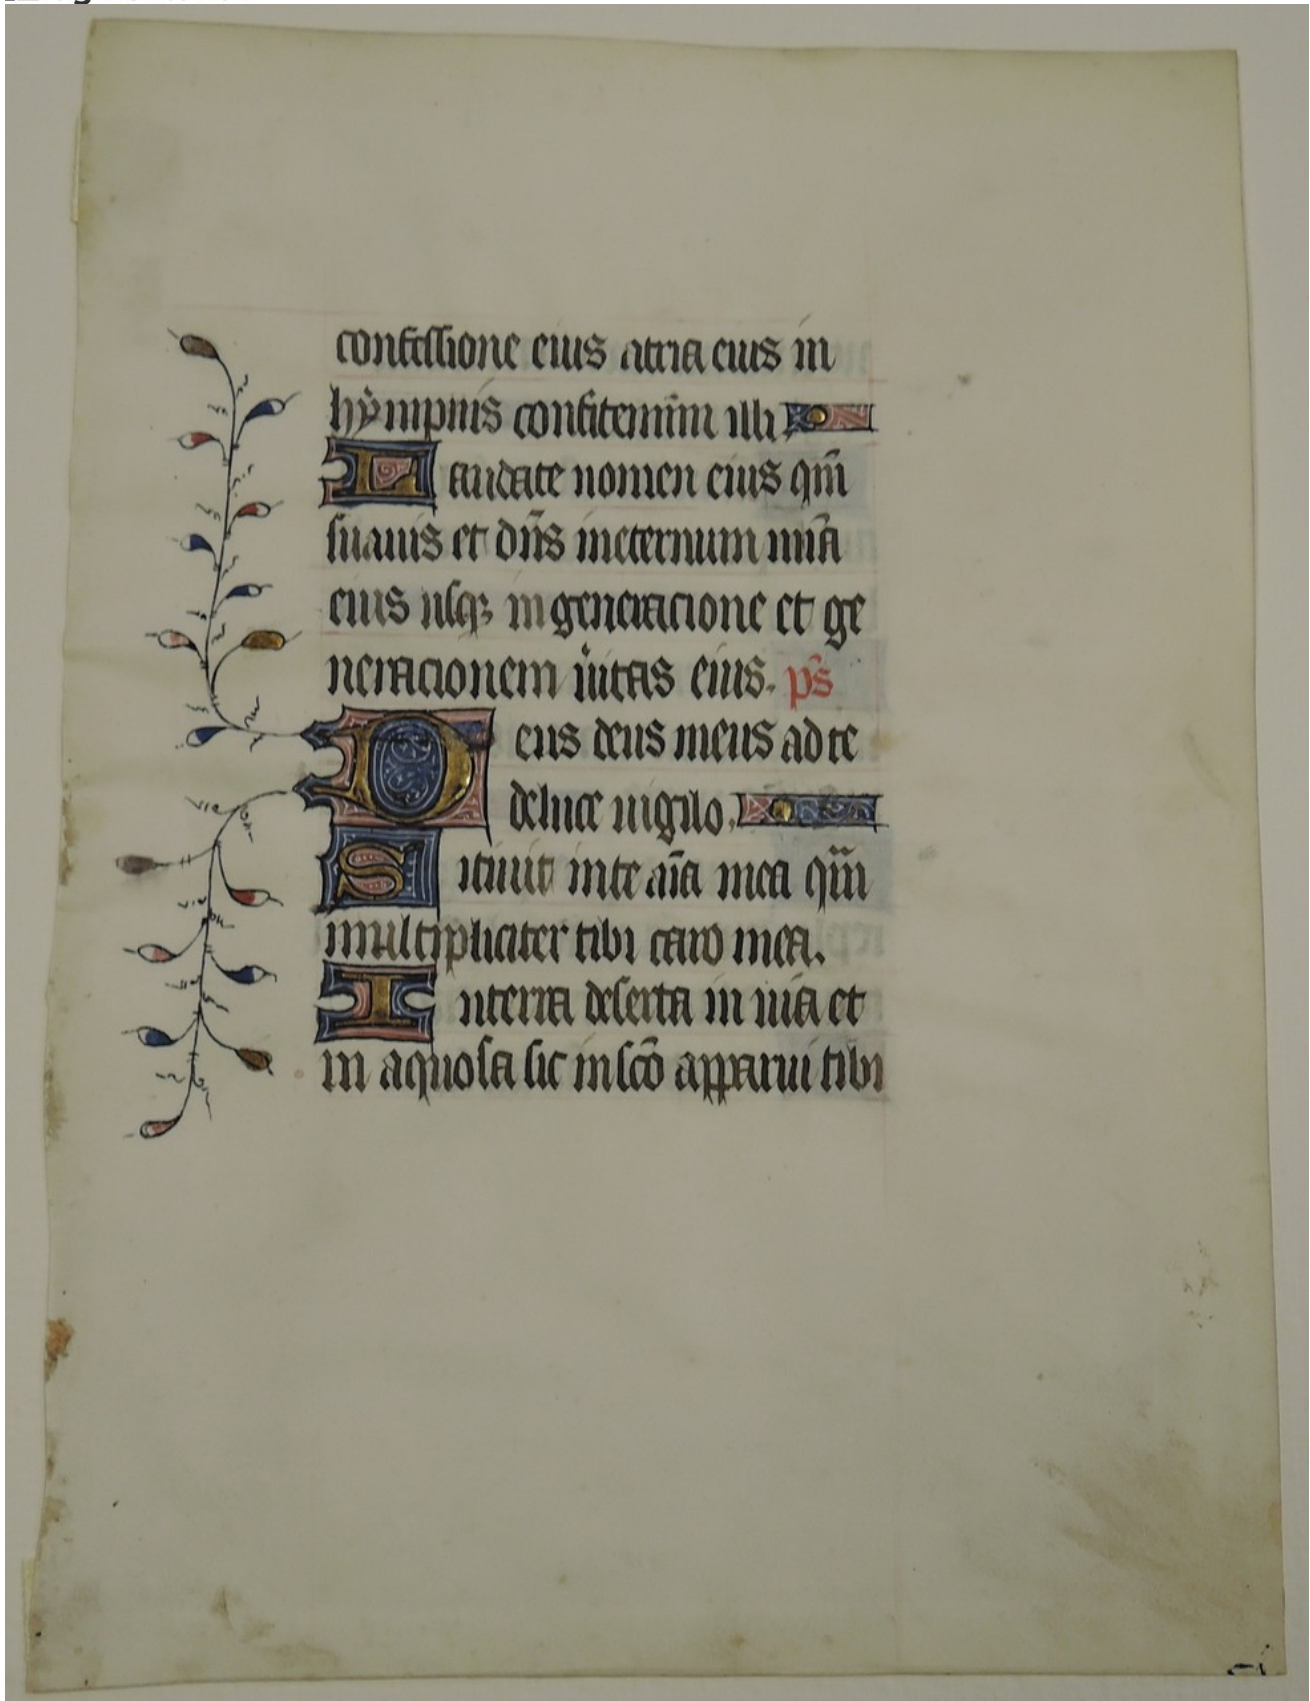 confessione eius atria eius in
hẏmpnis confitemini illi
Laudate nomen eius qm̄
suauis et dn̄s ineternum mīa
eius usqꝫ in generacione et ge
neracionem ůitas eius. ps̄
Deus deus meus ad te
deluce uigilo.
Sitiuit in te aīa mea qm̄
multipliciter tibi caro mea.
In terra deserta in uia et
in aquosa sic in scō apparui tibi